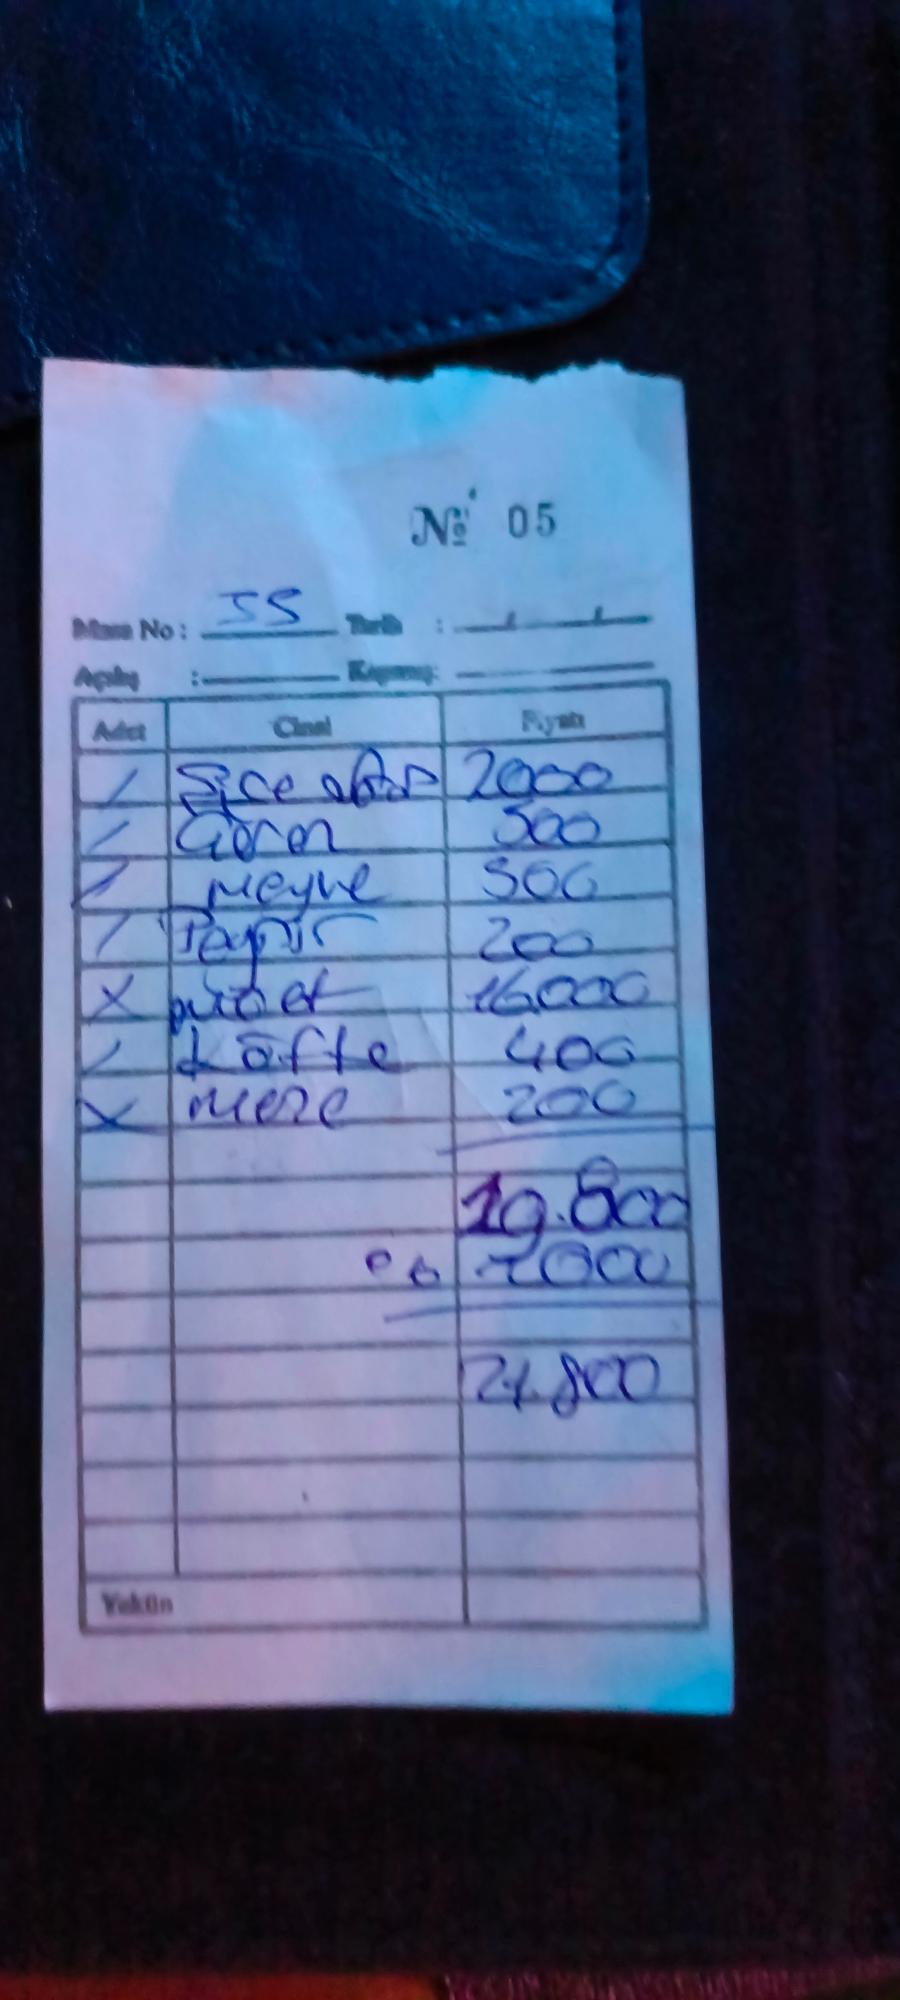 No 05
Masa No : 55 Tarih : / /
Açılış : Kapanış:
Adet Cinsi Fiyatı
/ 2000
/ Çerez 500
/ Meyve 500
/ Peynir 200
X 16000
/ köfte 400
X Meze 200
19.800
2000
21.800
Yekün